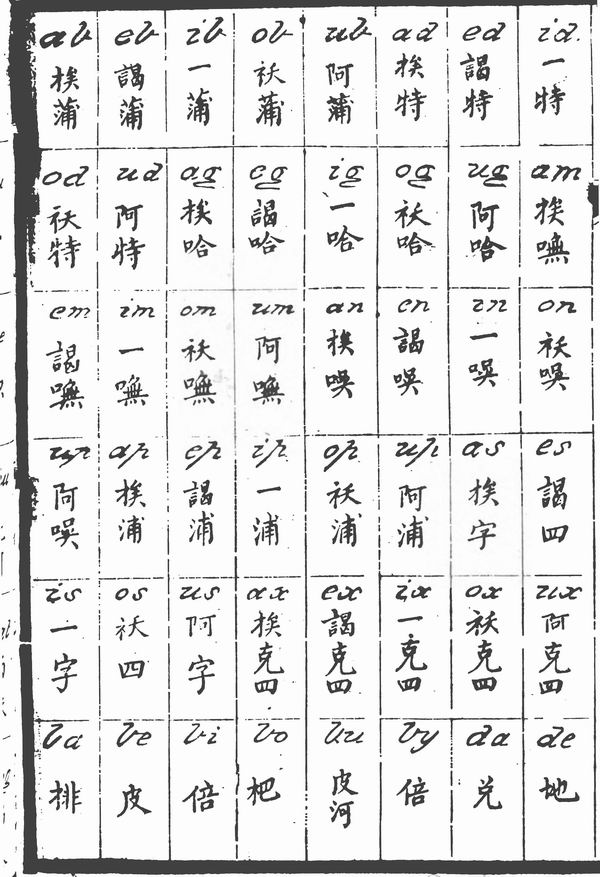 ab eb ib ob ub ad ed id
挨蒲 謁蒲 一蒲 袄蒲 阿蒲 挨特 謁特 一特
od ud ag eg ig og ug am
袄特 阿特 挨哈 謁哈 一哈 袄哈 阿哈 挨嘸
em im om um an en in on
謁嘸 一嘸 袄嘸 阿嘸 挨唤 謁唤 一唤 袄唤
un ap ep ip op up as es
阿唤 挨浦 謁浦 一浦 袄浦 阿浦 挨字 謁四
is os us ax ex ix ox ux
一字 袄四 阿字 挨克四 謁克四 一克四 袄克四 阿克四
ba be bi bo bu by da de
排 皮 倍 杷 皮河 倍 兑 地